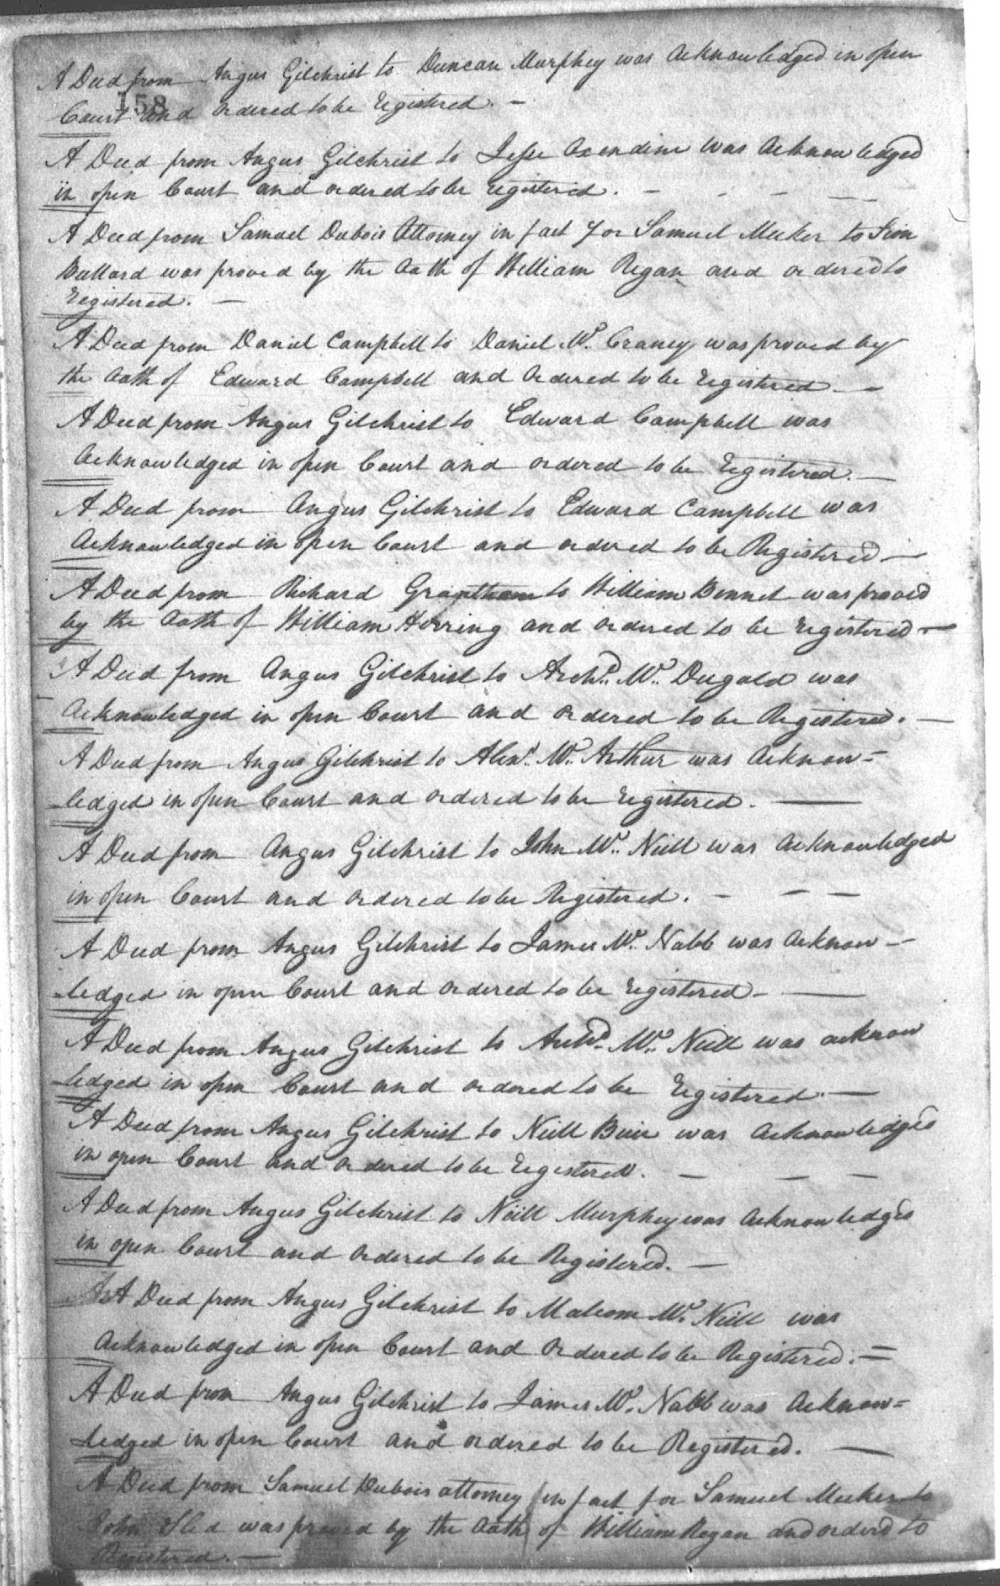 A Deed from Angus Gilchrist to Duncan Murphey was acknowledged in open
158
Court and ordered to be registered. –
A Deed from Angus Gilchrist to Jesse Oxendine was acknowledged
in open Court and ordered to be registered. – – –
A Deed from Samuel Dubois Attorney in fact for Samuel Meeker to
Bullard was proved by the Oath of William Regan and ordered to
Registered. –
A Deed from Daniel Campbell to Daniel Mc. Craney was proved by
the Oath of Edward Campbell and Ordered to be registered –
A Deed from Angus Gilchrist to Edward Campbell was
Acknowledged in open Court and ordered to be registered. –
A Deed from Angus Gilchrist to Edward Campbell was
Acknowledged in open Court and ordered to be Registered –
A Deed from Richard Grantham to William Bennet was proved
by the Oath of William Herring and ordered to be registered –
A Deed from Angus Gilchrist to Archd. Mc. Dugald was
Acknowledged in open Court and ordered to be Registered. –
A Deed from Angus Gilchrist to Alexr. Mc. Arthur was Acknow=
ledged in open Court and ordered to be registered. –
A Deed from Angus Gilchrist to John Mc. Neill was acknowledged
in open Court and ordered to be Registered. – – –
A Deed from Angus Gilchrist to James Mc. Nabb was acknow –
ledged in open Court and ordered to be registered – –
A Deed from Angus Gilchrist to Archd. Mc. Neill was acknow
ledged in open Court and ordered to be registered. –
A Deed from Angus Gilchrist to Neill Buie was acknowledged
in open Court and ordered to be registered. – – –
A Deed from Angus Gilchrist to Neill Murphey was acknowledged
in open Court and ordered to be Registered. –
A Deed from Angus Gilchrist to Malcom Mc. Neill was
Acknowledged in open Court and Ordered to be Registered. =
A Deed from Angus Gilchrist to James Mc. Nabb was Acknow=
ledged in open Court and ordered to be Registered. –
A Deed from Samuel Dubois attorney in fact for Samuel Meeker to
John was proved by the Oath of William Regan and ordered to
Registered. –